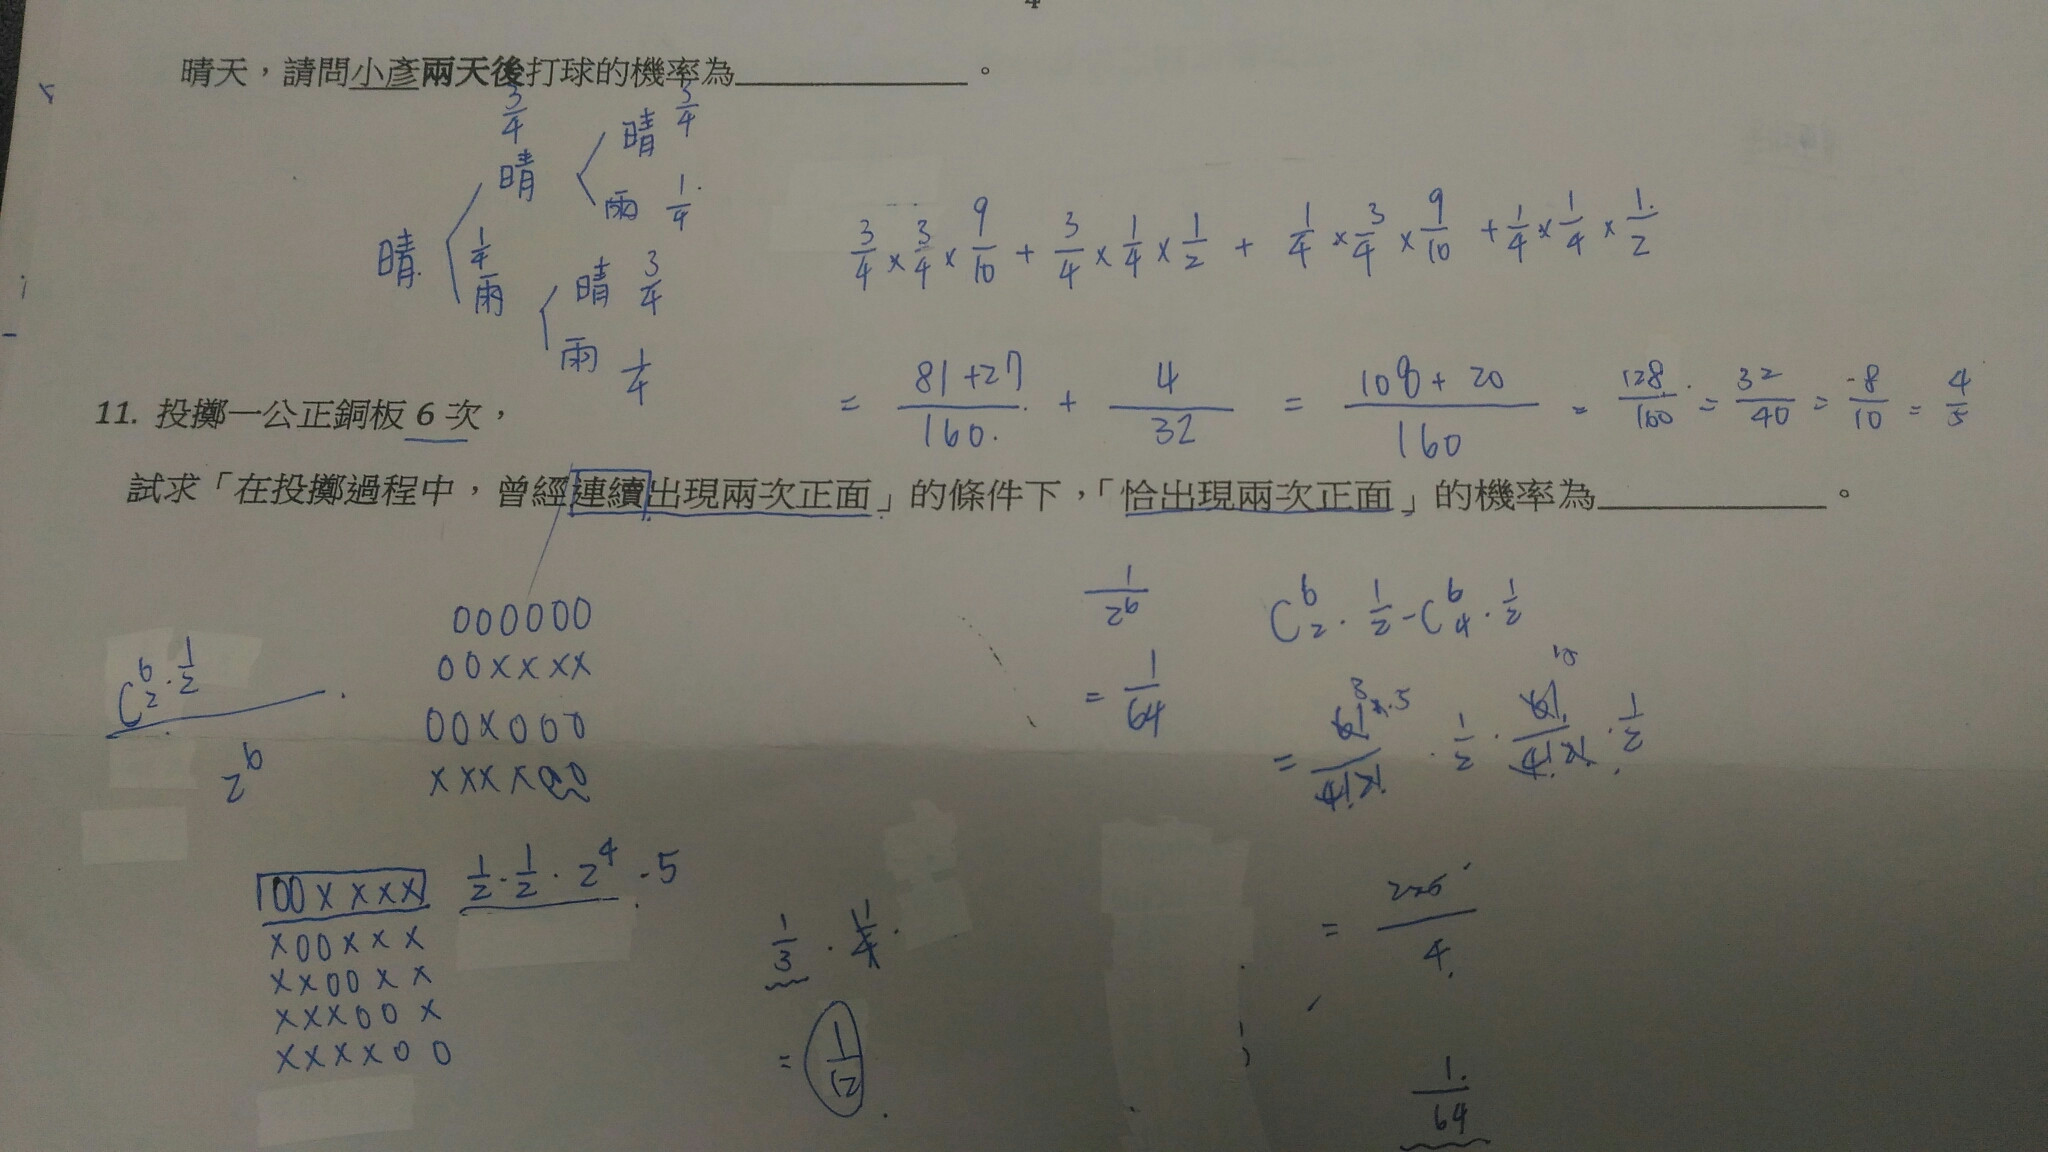 晴天，請問小彥兩天後打球的機率為__________。
3/4 晴 3/4
晴 雨 1/4
晴 1/4 雨 晴 3/4
雨 1/4
3/4 × 3/4 × 9/10 + 3/4 × 1/4 × 1/2 + 1/4 × 3/4 × 9/10 + 1/4 × 1/4 × 1/2
= 81+27/160 + 4/32 = 108+20/160 = 128/160 = 32/40 = 8/10 = 4/5
11. 投擲一公正銅板 6 次，
試求「在投擲過程中，曾經連續出現兩次正面」的條件下，「恰出現兩次正面」的機率為__________。
C 6 2 · 1/2
2^6
000000
00xxxx
00x000
xxxx00
1/2^6
= 1/64
C 6 2 · 1/2 - C 6 4 · 1/2
= 6!/4!2! · 1/2 · 6!/4!2! · 1/2
00xxxx 1/2 · 1/2 · 2^4 · 5
x00xxx
xx00xx
xxx00x
xxxx00
1/3 · 1/4
= 1/12
1/64